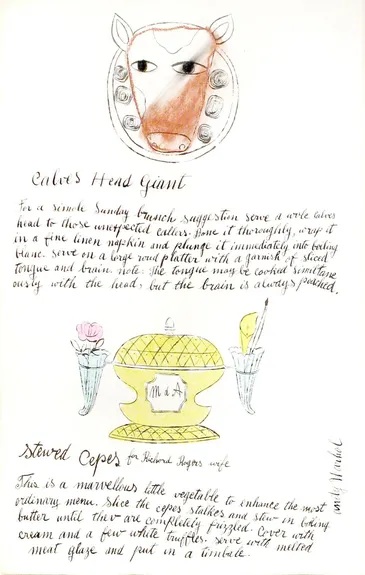 Calves Head Giant
For a simple Sunday brunch suggestion serve a whole Calves
head to those unexpected callers. Bone it thoroughly, wrap it
in a fine linen napkin and plunge it immediately into boiling
blanc. Serve on a large round platter with a garnish of sliced
tongue and brain. note: the tongue may be cooked simultane
ously with the head, but the brain is always poached.
M & A
Stewed Cepes for Richard Rogers wife
This is a marvellous little vegetable to enhance the most
ordinary menu. Slice the cepes stalkes and stew in boiling
butter until they are completely frizzled. Cover with
cream and a few white truffles. serve with melted
meat glaze and put in a timbale.
Andy Warhol